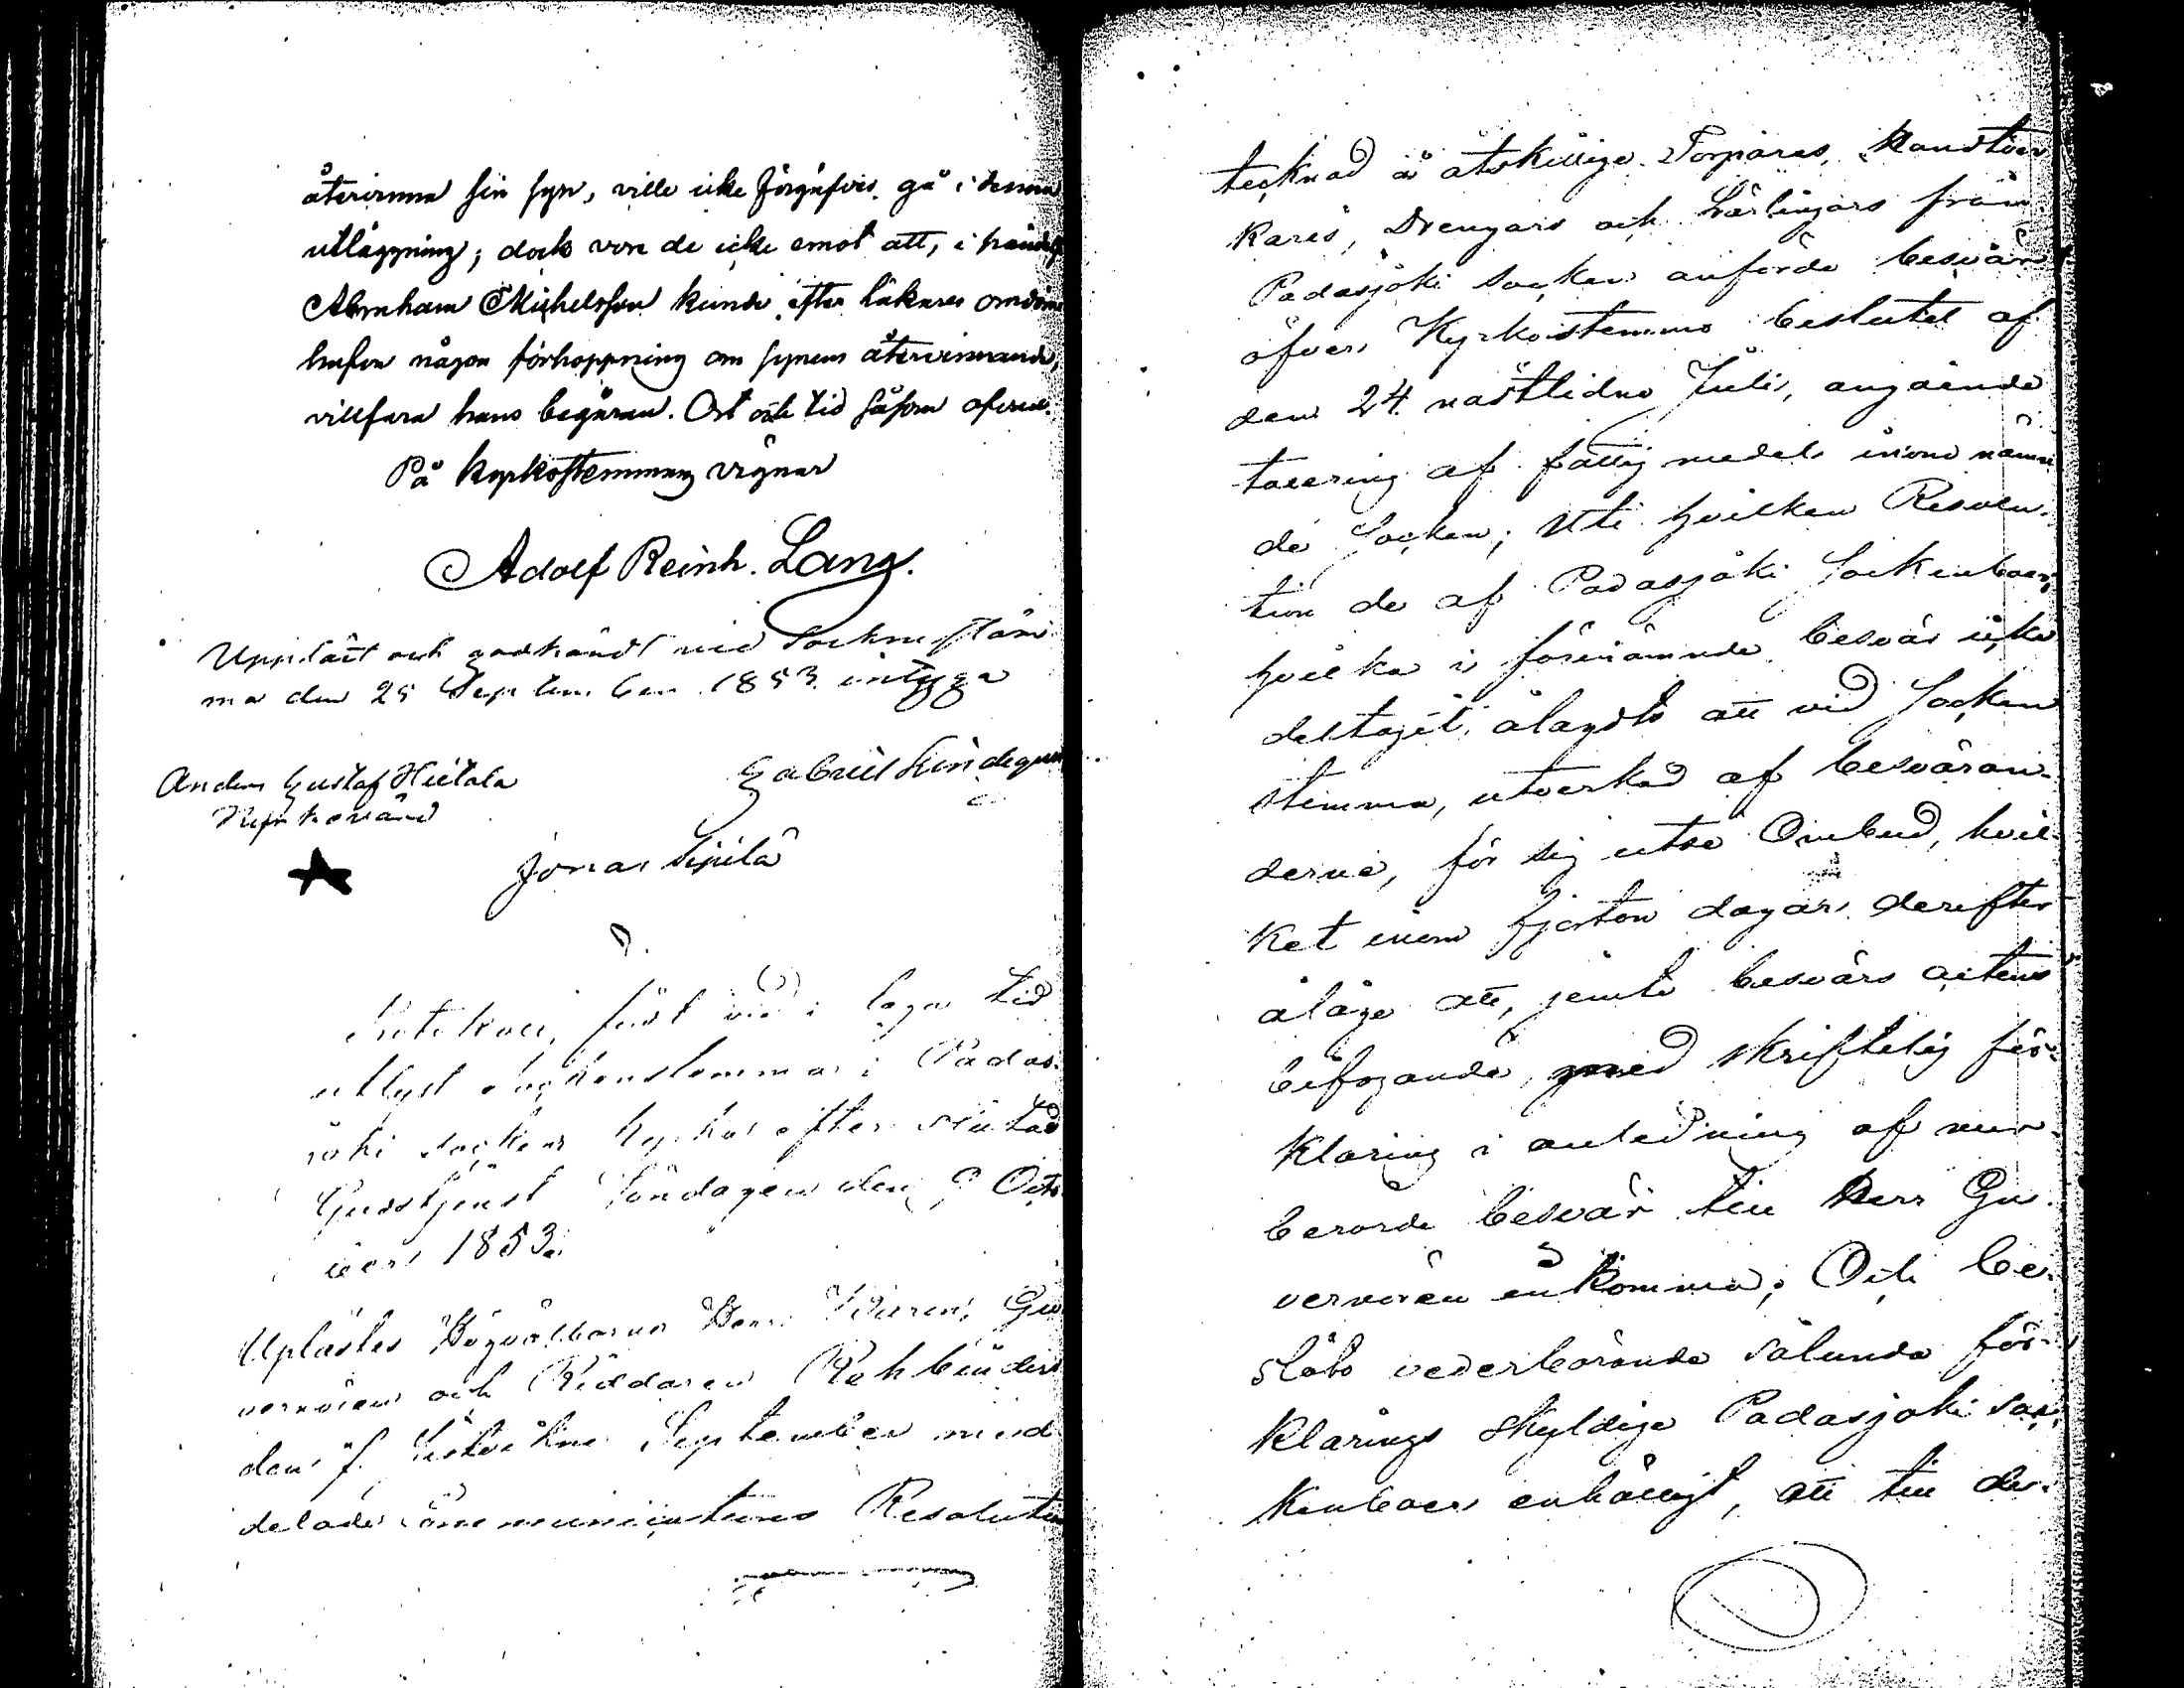 återvinna sin syn, ville icke förgäfves gå i denna
utläggning; dock voro de icke emot att, i händelse
Abraham Michelsson kunde efter läkares omdöme
hafva någon förhoppning om synens återvinnande,
villfara hans begäran. Ort och tid såsom ofvan.
På kyrkostemmans vägnar
Adolf Reinh. Lang.
Uppläst och godkändt vid Sockneståm
ma den 25 September 1853 intyga
Anders Gustaf Hietala
Gabriel Lindegren
Jonas Sipilä
Protokoll, fördt vid i laga tid
utlyst sockenstemma i Padas-
joki sockens kyrka efter slutad
Gudstjenst Söndagen den 9 Octo-
ber 1853.
Uplästes Högvälborne Herr Guver-
nören och Riddaren Rehbinders
den September med-
delade Communications Resolution
tecknad å åtskillige Torpares, Handtver
kares, Drengars och Lärlingars från
Padasjoki socken anförde besvär
öfver Kyrkostemmo beslutet af
den 24 nästlidne Julii, angående
taxering af fattigmedel inom nämn
de Socken; Uti hvilken Resolu-
tion de af Padasjoki Sockenboer,
hvilka i förenämnde besvär icke
deltagit, ålagdts att vid Socken
stemma, utverkad af besväran-
derne, för sig utse Ombud, hvil-
ket inom fjorton dagar derefter
åläge att, jemte besvärs actens
bifogande, med skriftelig för-
klaring i anledning af mer-
berörde besvär till Herr Gu-
vernören inkomma; Och be-
slöto vederbörande sålunda för-
klarings skyldige Padasjoki soc-
kenboer enhälligt, att till de-